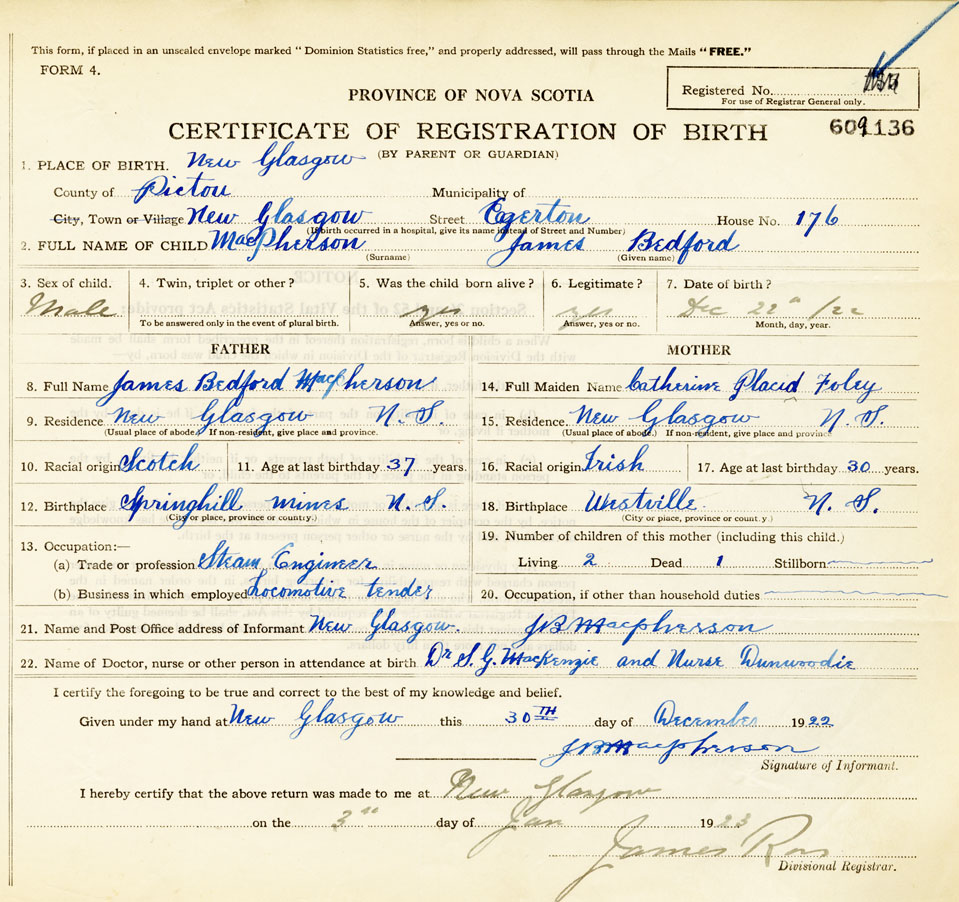 This form, if placed in an unsealed envelope marked "Dominion Statistics free," and properly addressed, will pass through the Mails "FREE."
FORM 4.
Registered No.
For use of Registrar General only.
PROVINCE OF NOVA SCOTIA
CERTIFICATE OF REGISTRATION OF BIRTH 609136
(BY PARENT OR GUARDIAN)
1. PLACE OF BIRTH. New Glasgow
County of Pictou Municipality of
City, Town or Village New Glasgow Street Egerton House No. 176
(If birth occurred in a hospital, give its name instead of Street and Number)
2. FULL NAME OF CHILD MacPherson James Bedford
(Surname) (Given name)
3. Sex of child. 4. Twin, triplet or other? 5. Was the child born alive? 6. Legitimate? 7. Date of birth?
Male yes yes Dec 22" /22
To be answered only in the event of plural birth. Answer, yes or no. Answer, yes or no. Month, day, year.
FATHER MOTHER
8. Full Name James Bedford MacPherson 14. Full Maiden Name Catherine Placid Foley
9. Residence New Glasgow N.S. 15. Residence. New Glasgow N.S.
(Usual place of abode.) If non-resident, give place and province. (Usual place of abode.) If non-resident, give place and province
10. Racial origin Scotch 11. Age at last birthday 37 years. 16. Racial origin Irish 17. Age at last birthday 30 years.
12. Birthplace Springhill mines N.S. 18. Birthplace Westville N.S.
(City or place, province or country.) (City or place, province or country.)
13. Occupation:— 19. Number of children of this mother (including this child.)
(a) Trade or profession Steam Engineer Living 2 Dead 1 Stillborn
(b) Business in which employed Locomotive tender 20. Occupation, if other than household duties
21. Name and Post Office address of Informant New Glasgow. JBMacpherson
22. Name of Doctor, nurse or other person in attendance at birth Dr S. G. MacKenzie and Nurse Dunwoodie
I certify the foregoing to be true and correct to the best of my knowledge and belief.
Given under my hand at New Glasgow this 30TH day of December 1922
JBMacpherson
Signature of Informant.
I hereby certify that the above return was made to me at New Glasgow
on the 3" day of Jan 1923
James Ross
Divisional Registrar.